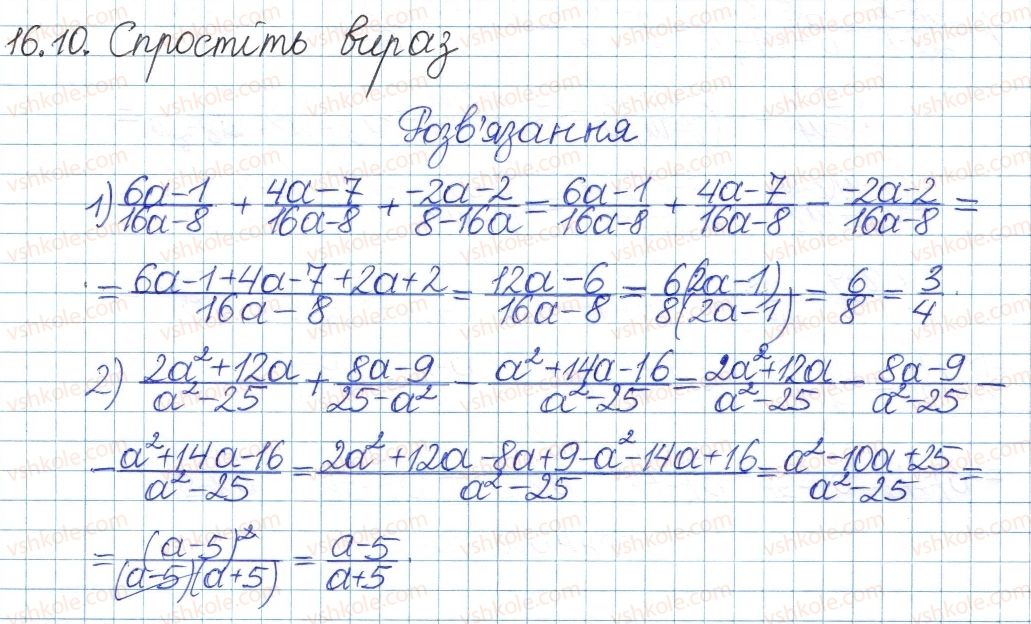 16.10. Спростіть вираз
Розв'язання
1) \frac{6a-1}{16a-8} + \frac{4a-7}{16a-8} + \frac{-2a-2}{8-16a} = \frac{6a-1}{16a-8} + \frac{4a-7}{16a-8} - \frac{-2a-2}{16a-8} =
= \frac{6a-1+4a-7+2a+2}{16a-8} = \frac{12a-6}{16a-8} = \frac{6(2a-1)}{8(2a-1)} = \frac{6}{8} = \frac{3}{4}.
2) \frac{2a^2+12a}{a^2-25} + \frac{8a-9}{25-a^2} - \frac{a^2+14a-16}{a^2-25} = \frac{2a^2+12a}{a^2-25} - \frac{8a-9}{a^2-25} -
- \frac{a^2+14a-16}{a^2-25} = \frac{2a^2+12a-8a+9-a^2-14a+16}{a^2-25} = \frac{a^2-10a+25}{a^2-25} =
= \frac{(a-5)^2}{(a-5)(a+5)} = \frac{a-5}{a+5}.